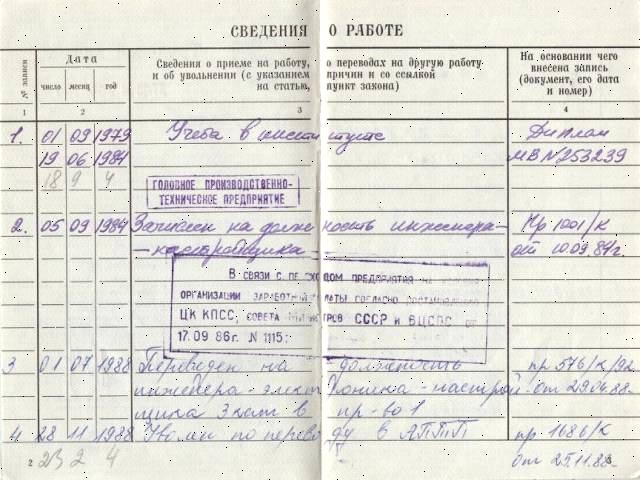 СВЕДЕНИЯ О РАБОТЕ
№ записи
Дата
число месяц год
Сведения о приеме на работу, о переводах на другую работу
и об увольнении (с указанием причин и со ссылкой
на статью, пункт закона)
На основании чего
внесена запись
(документ, его дата
и номер)
1 2 3 4
1. 01 09 1979 Учеба в институте Диплом
19 06 1984 МВ № 253239
18 9 4
ГОЛОВНОЕ ПРОИЗВОДСТВЕННО-
ТЕХНИЧЕСКОЕ ПРЕДПРИЯТИЕ
2. 05 09 1984 Зачислен на должность инженера- Пр 1001/к
-настройщика от 10.09.84г.
В СВЯЗИ С ПЕРЕХОДОМ ПРЕДПРИЯТИЯ НА
ОРГАНИЗАЦИИ ЗАРАБОТНОЙ ПЛАТЫ СОГЛАСНО ПОСТАНОВЛЕНИЮ
ЦК КПСС, СОВЕТА МИНИСТРОВ СССР И ВЦСПС ОТ
17.09 86г. N 1115:
3 01 07 1988 Переведен на должность пр 576/к/92
инженера-электроника-настрой- от 29.06.88г.
щика 3 кат в пр-во 1
4 28 11 1988 Уволен по переводу в АПТП пр 1686/к
2 23 2 4 от 25.11.88г.